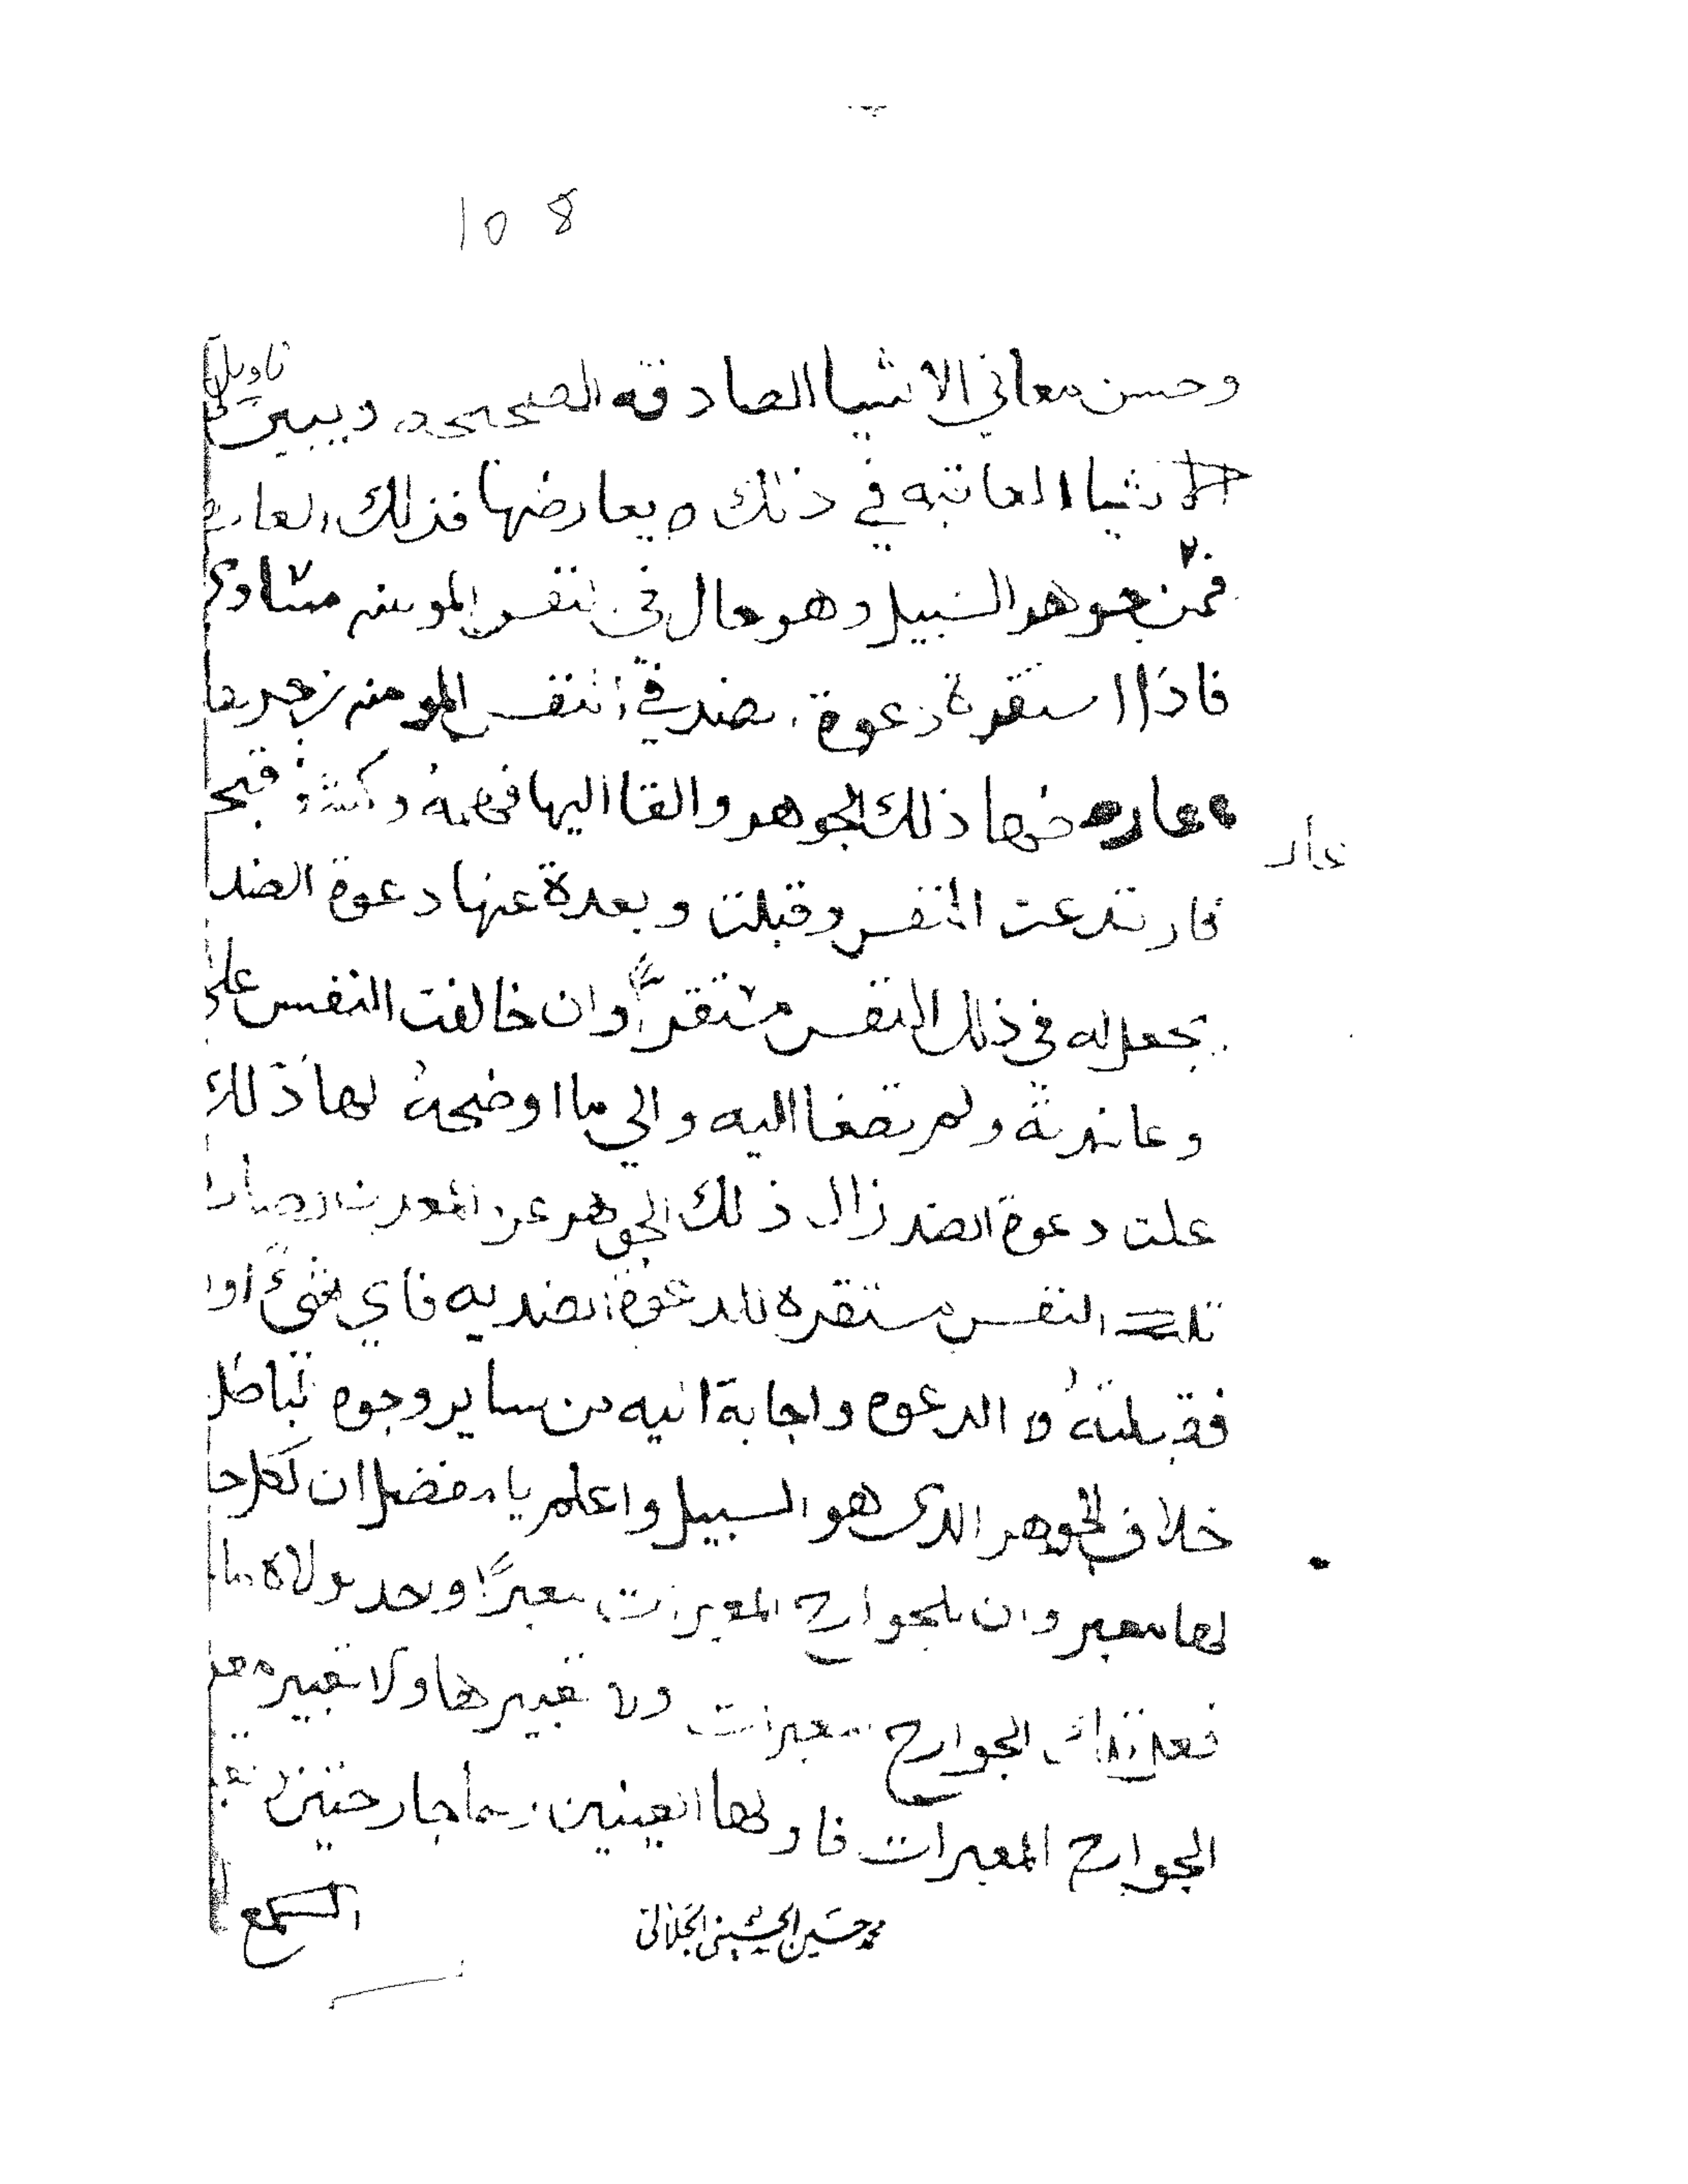 108
وحسن معاني الاشيا الصادقه الصحيحه ويبين تاويل
الاشيا العاتبه في ذلك ويعارضها فذلك العارض
فمن جوهر السبيل وهو حال في النفس المومنه متساوي
فاذا استقرة دعوة الضد في النفس المومنه
عارضها ذلك الجوهر والقا اليها فهمه وكشف قبح
عار
فارتدعت النفس وقبلت وبعدة عنها دعوة الضد
يجعل له في ذلك النفس مستقرًّا وان خالفت النفس على
وعاندته ولم تصغا اليه والي ما اوضحهُ لها ذلك
علت دعوة الضد زال ذلك الجوهر عن
تلك النفس مستقره للدعوة الضديه فاي شيً
فقبلتهُ الدعوه واجابة اليه من ساير وجوه الباطل
خلاف الجوهر الذي هو السبيل واعلم يا مفضل ان لكل
لها معبر وان للجوارح المعبرات معبرًا
الجوارح معبرات ولا تعبيرها ولا تعبير
الجوارح المعبرات فاولها العينين جارحتين
السمع
محمد حسين الحسيني الجلالي